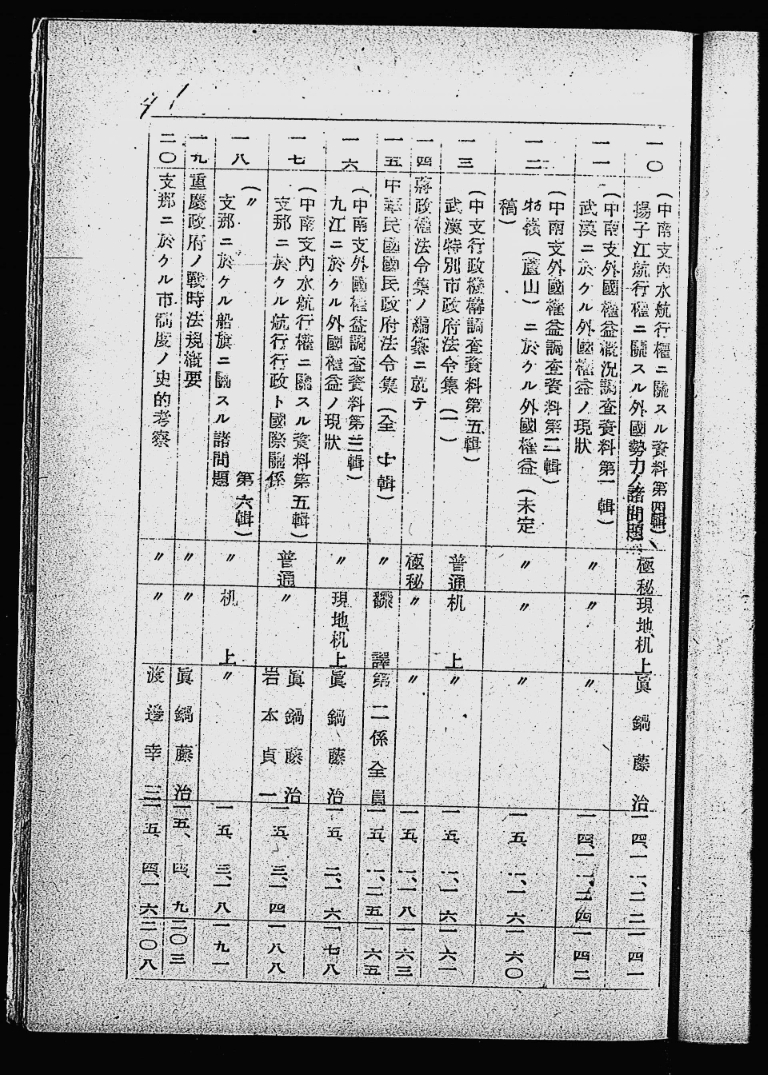 一〇 (中南支內水航行權ニ關スル資料第四輯)
揚子江航行權ニ關スル外國勢力ノ諸問題 極秘 現地、机上 眞鍋藤治 一四、一二、二二 一四一
一一 (中南支外國權益槪況調査資料第一輯)
武漢ニ於クル外國權益ノ現狀 〃 〃 〃 一四二
一二 (中南支外國權益調査資料第二輯)
牯嶺(蘆山)ニ於クル外國權益(未定
稿) 〃 〃 〃 一五、一、一六 一六〇
一三 (中支行政機構調査資料第五輯)
武漢特別市政府法令集(一) 普通 机上 〃 一五、一、一六 一六一
一四 蔣政權法令集ノ編纂ニ就テ 極秘 〃 〃 一五、一、一八 一六三
一五 中華民國國民政府法令集(全七輯) 〃 飜譯 第二係全員 一五、一、二五 一六五
一六 (中南支外國權益調査資料第三輯)
九江ニ於クル外國權益ノ現狀 〃 現地、机上 眞鍋藤治 一五、二、一六 一七八
一七 (中南支內水航行權ニ關スル資料第五輯)
支那ニ於クル航行行政ト國際關係 普通 〃 眞鍋藤治
岩本貞一 一五、三、一四 一八八
一八 (〃 第六輯)
支那ニ於クル船旗ニ關スル諸問題 〃 机上 〃 一五、三、一八 一九一
一九 重慶政府ノ戰時法規槪要 〃 〃 眞鍋藤治 一五、四、九 二〇三
二〇 支那ニ於クル市制度ノ史的考察 〃 〃 渡邊幸三 一五、四、一六 二〇八